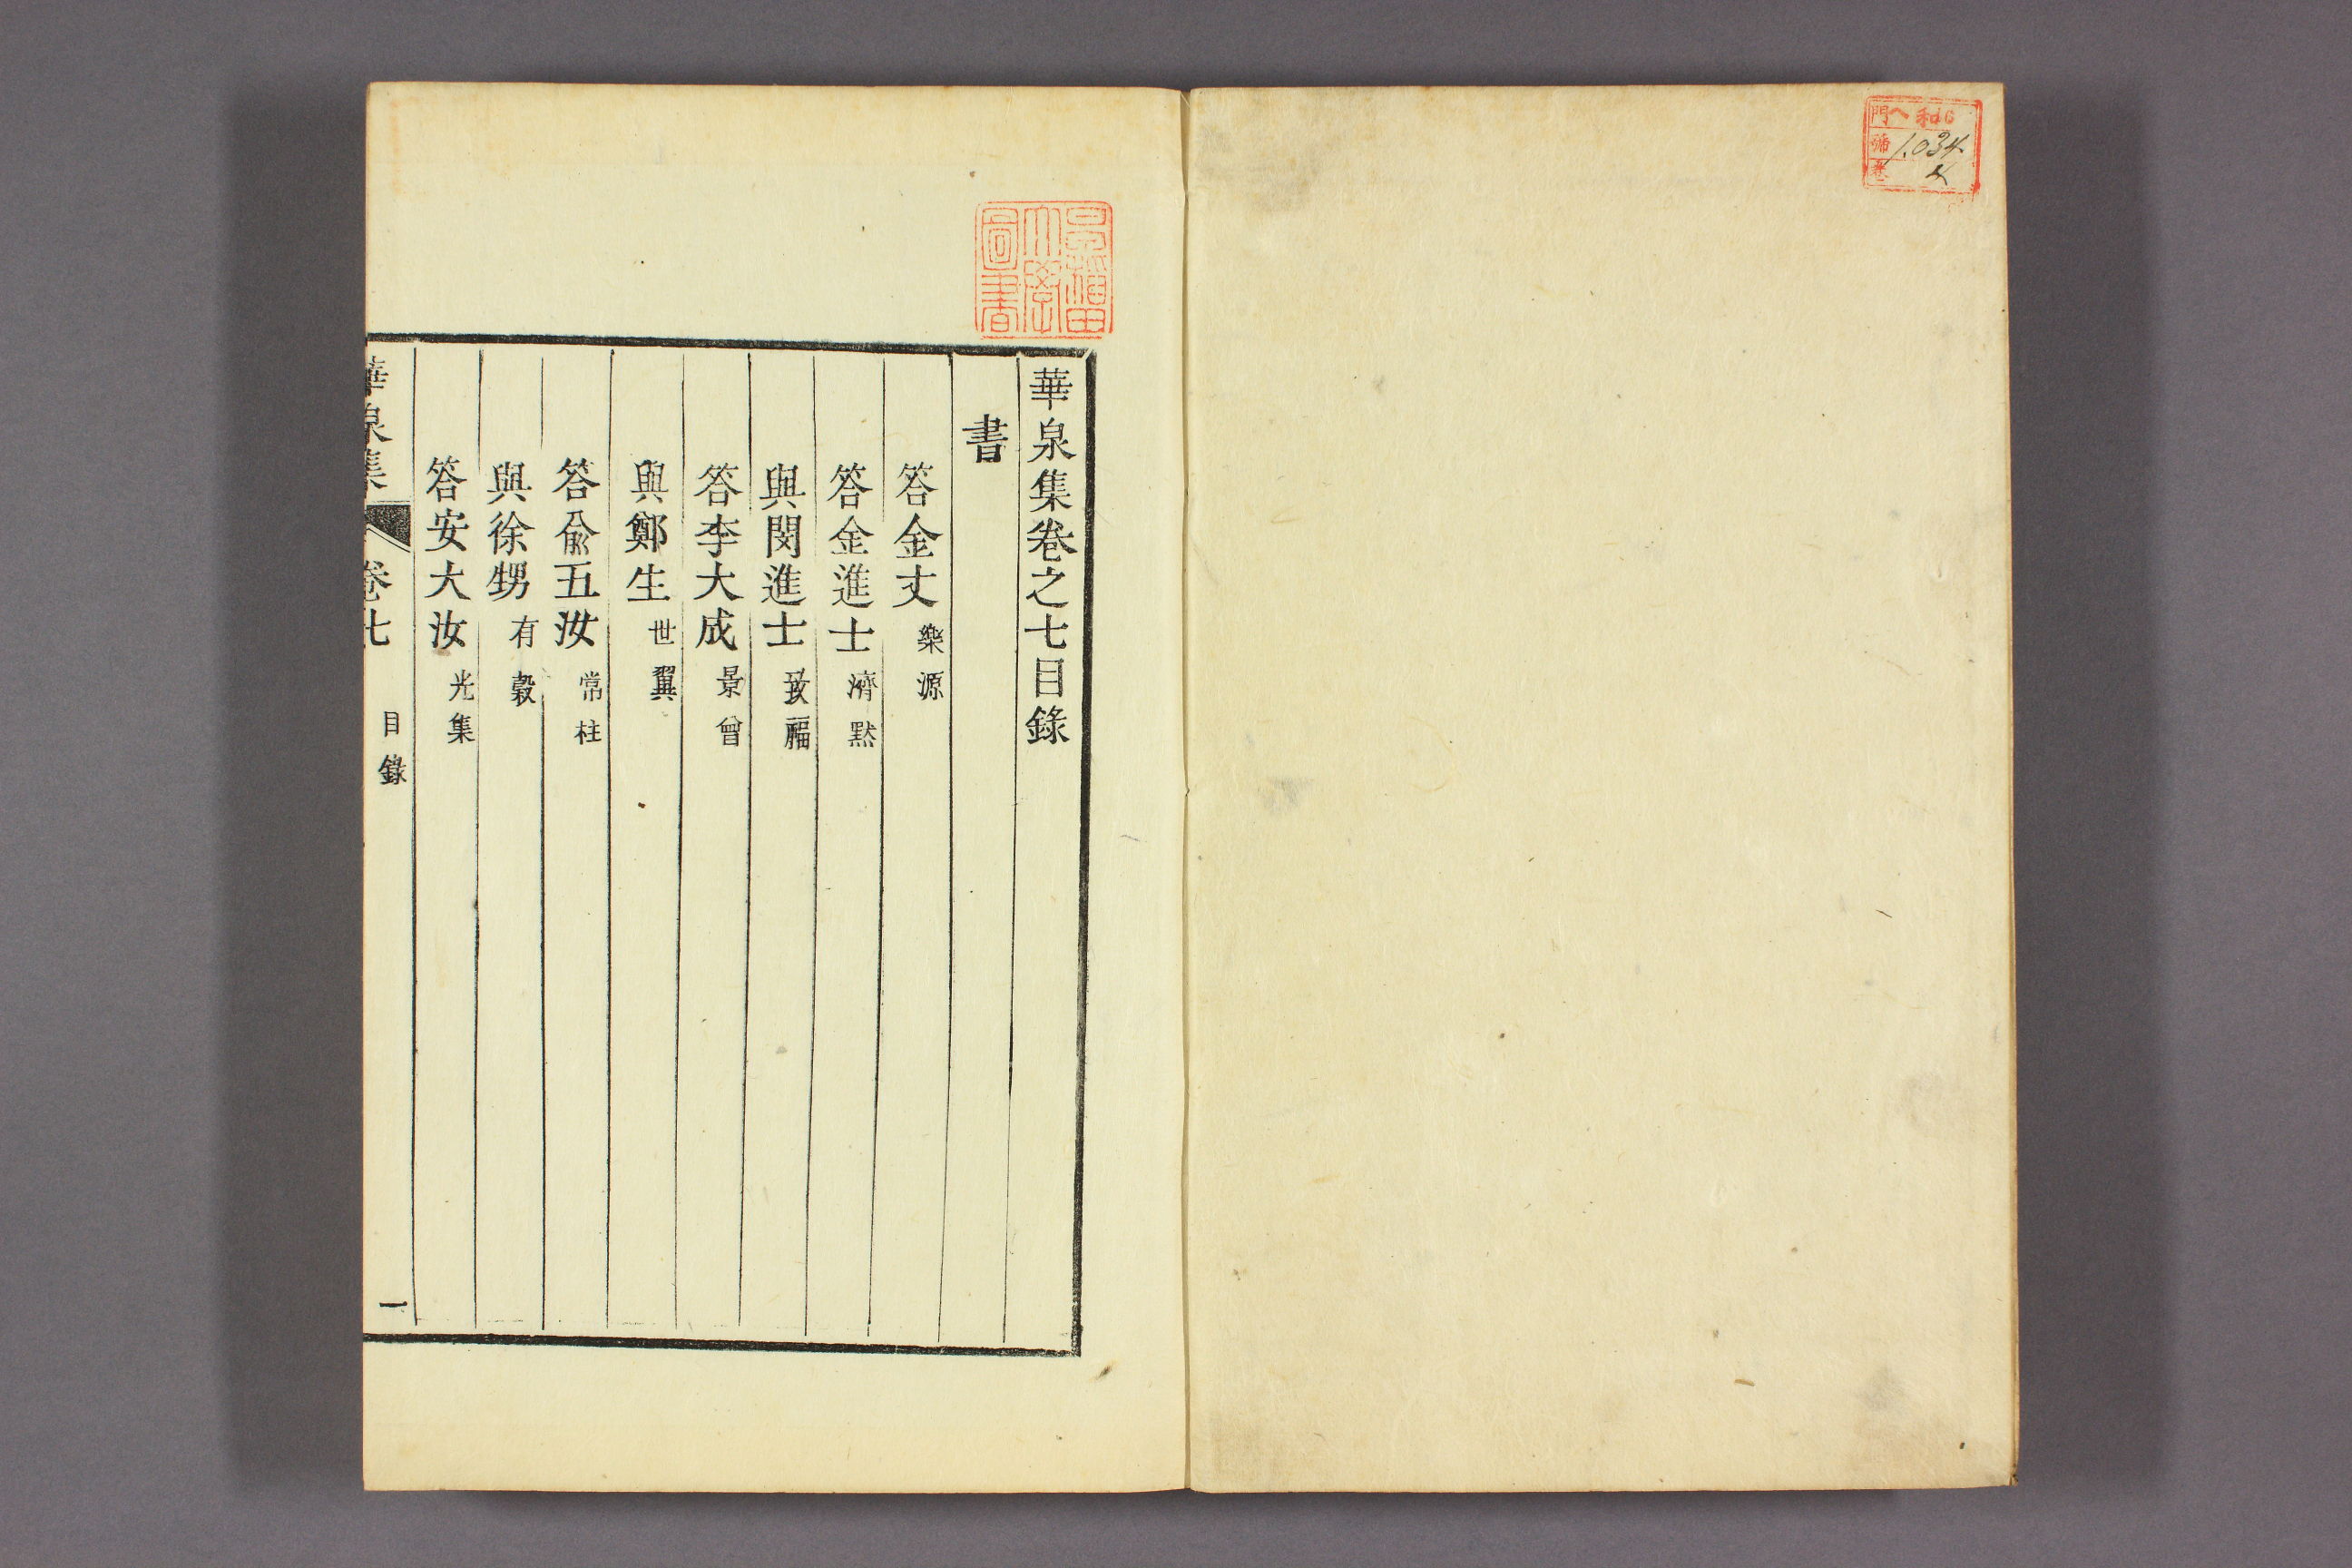 門ヘ和6
號 1.034
巻 4
早稲田
大學
圖書
華泉集卷之七目錄
書
答金丈樂源
答金進士濟默
與閔進士致福
答李大成景曾
與鄭生世翼
答兪五汝常柱
與徐甥有穀
答安大汝光集
華泉集 卷七 目錄 一